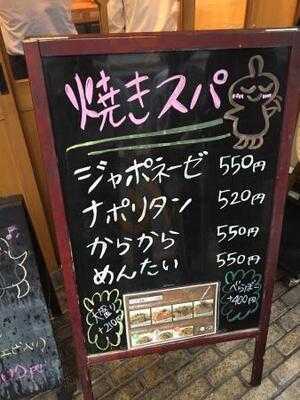 焼きスパ
ジャポネーゼ 550円
ナポリタン 520円
からから 550円
めんたい 550円
大盛り
+210円
べらぼう
+400円